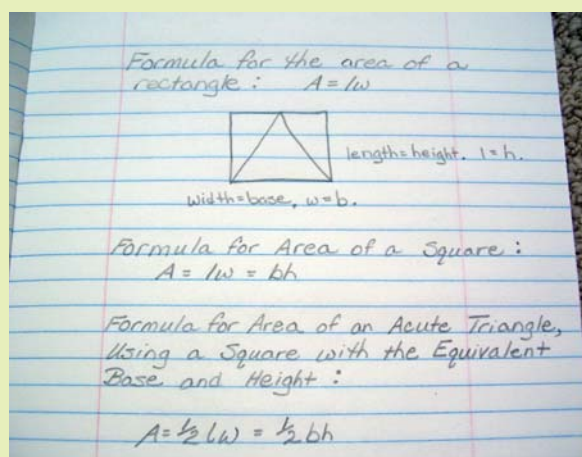 Formula for the area of a
rectangle: A = lw
length=height. l=h.
width=base, w=b.
Formula for Area of a Square:
A = lw = bh
Formula for Area of an Acute Triangle,
Using a Square with the Equivalent
Base and Height:
A=½(lw) = ½bh